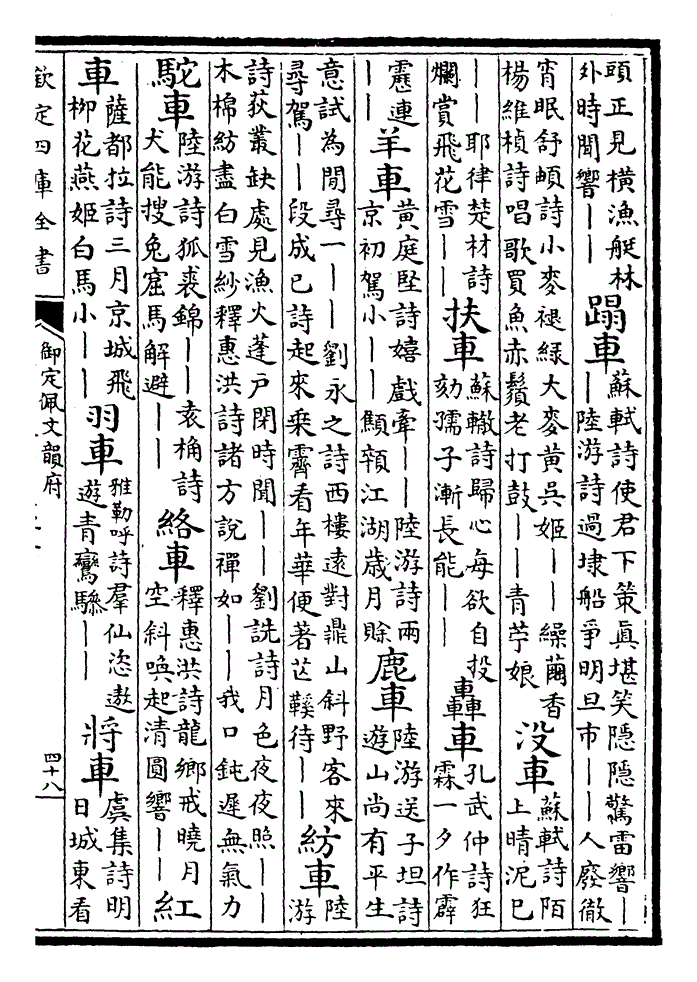 頭正見橫漁艇林
外時聞響丨丨
蹋車
蘇軾詩使君下策真堪笑隱隱驚雷響丨
丨陸游詩過埭船爭明旦市丨丨人廢徹
宵眠舒頔詩小麥褪綠大麥黃吳姬丨丨繰繭香
楊維楨詩唱歌買魚赤鬚老打鼓丨丨青苧娘
没車
蘇軾詩陌
上晴泥已
丨丨耶律楚材詩
爛賞飛花雪丨丨
扶車
蘇轍詩歸心每欲自投
劾孺子漸長能丨丨
轟車
孔武仲詩狂
霖一夕作霹
靂連
丨丨
羊車
黃庭堅詩嬉戲牽丨丨陸游詩兩
京初駕小丨丨顦顇江湖歲月賒
鹿車
陸游送子坦詩
遊山尚有平生
意試為閒尋一丨丨劉永之詩西樓遠對鼎山斜野客來
尋駕丨丨段成已詩起來乘霽看年華便著芒鞵待丨丨
紡車
陸
游
詩荻叢缺處見漁火蓬戶閉時聞丨丨劉詵詩月色夜夜照丨丨
木棉紡盡白雪紗釋惠洪詩諸方說禪如丨丨我口鈍遲無氣力
駝車
陸游詩狐裘錦丨丨袁桷詩
犬能搜兔窟馬解避丨丨
絡車
釋惠洪詩龍鄉戒曉月工
空斜喚起清圓響丨丨
紅
車
薩都拉詩三月京城飛
柳花燕姬白馬小丨丨
羽車
雅勒呼詩羣仙恣遨
遊青鸞驂丨丨
將車
虞集詩明
日城東看
欽定四庫全書
御定佩文韻府
四十八